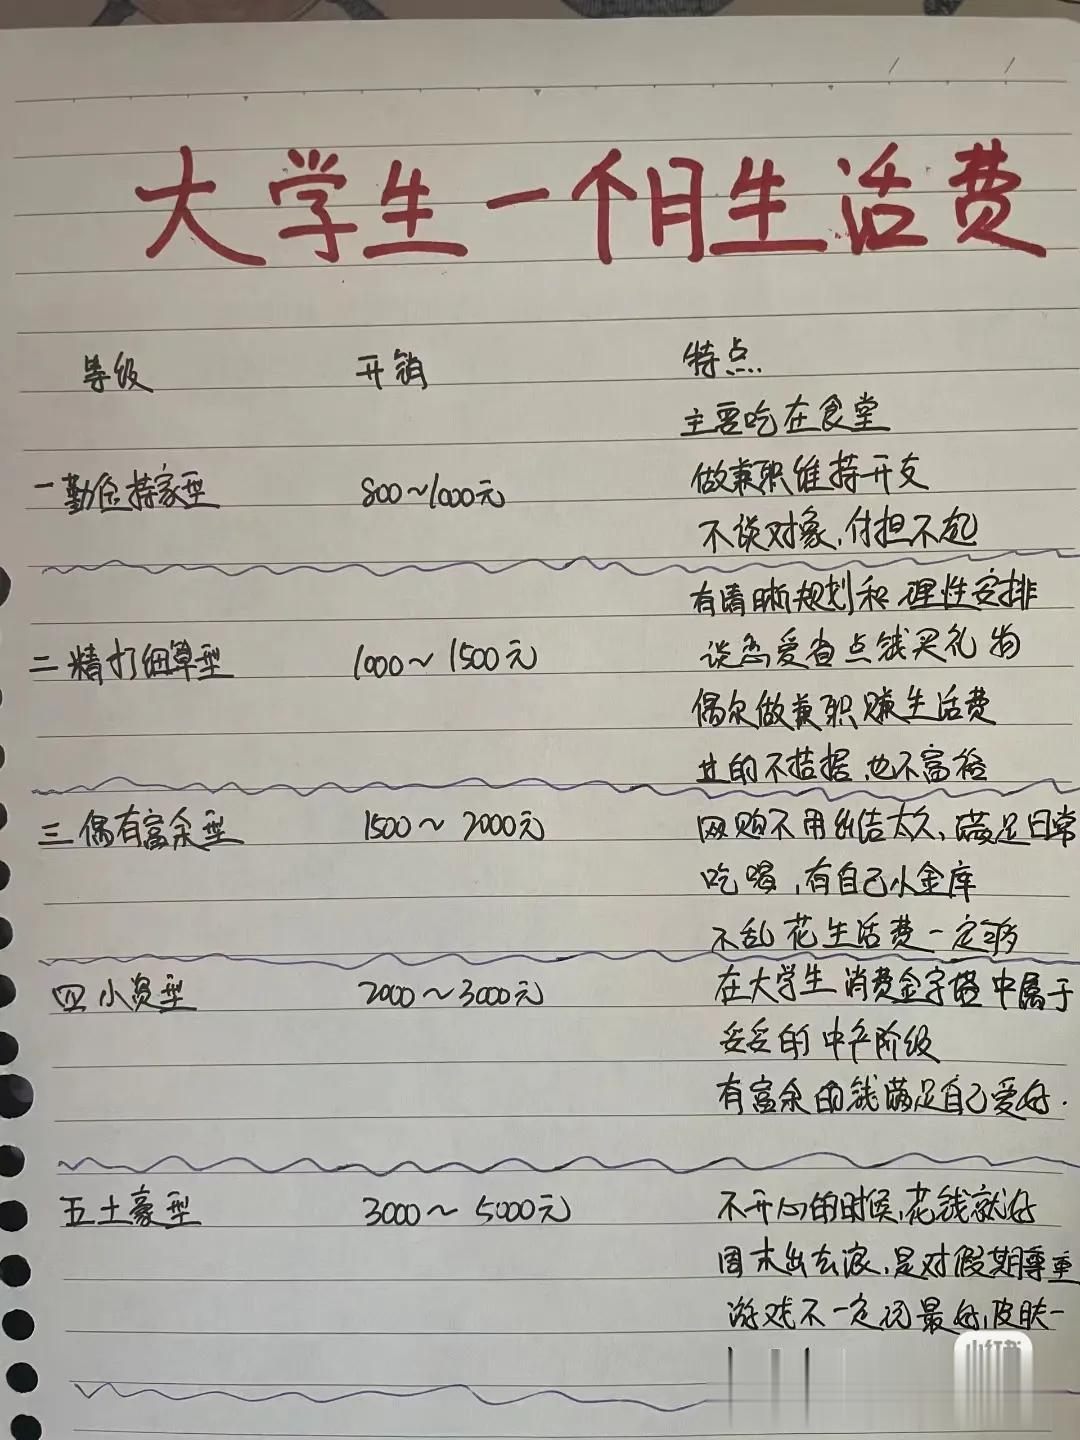 大学生一个月生活费
等级 开销 特点
主要吃在食堂
一勤俭持家型 800~1000元 做兼职维持开支
不谈对象,付担不起
有清晰规划和理性安排
二精打细算型 1000~1500元 谈恋爱省点钱买礼物
偶尔做兼职赚生活费
过的不拮据,也不富裕
三偶有富余型 1500~2000元 网购不用纠结太久,满足日常
吃喝,有自己小金库
不乱花生活费一定够
四小资型 2000~3000元 在大学生消费金字塔中属于
妥妥的中产阶级
有富余的钱满足自己爱好.
五土豪型 3000~5000元 不开心的时候,花钱就好
周末出去浪,是对假期尊重
游戏不一定玩最好,皮肤一
小红书